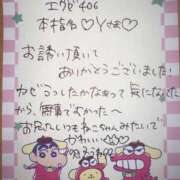 エクゼ406
本指名♡Yさま♡
お誘い頂いて
ありがとうございました!
カゼうつしたかなぁって気になってた
から、無事でよかった〜
お兄たんいつもねこちゃんみたいで
かわいい♡